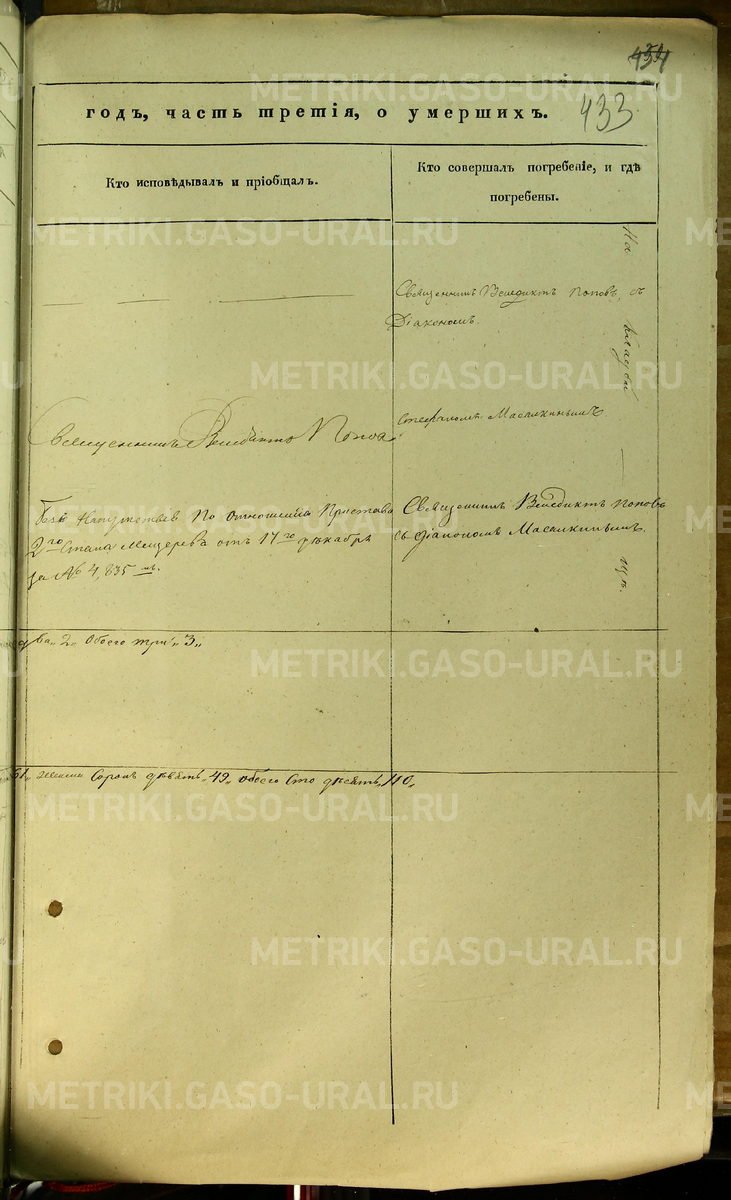 454
433
годъ, часть третія, о умершихъ.
Кто исповѣдывалъ и пріобщалъ.
Кто совершалъ погребеніе, и гдѣ
погребены.
На кладби
щѣ.
Священникъ Венедиктъ Поповъ, съ
Діакономъ
Стефаномъ Масалкинымъ
Священникъ Венедиктъ Попов
Безъ напутствія По отношенію Пристава
2го Стана Мещерева отъ 17го декабря
за № 4,835мъ.
Священникъ Венедиктъ Поповъ
съ діакономъ Масалкинымъ.
два „2„ Обоего три „3„
61„ женска Сорокъ девять „49„ обоего Сто десять „110„
METRIKI.GASO-URAL.RU